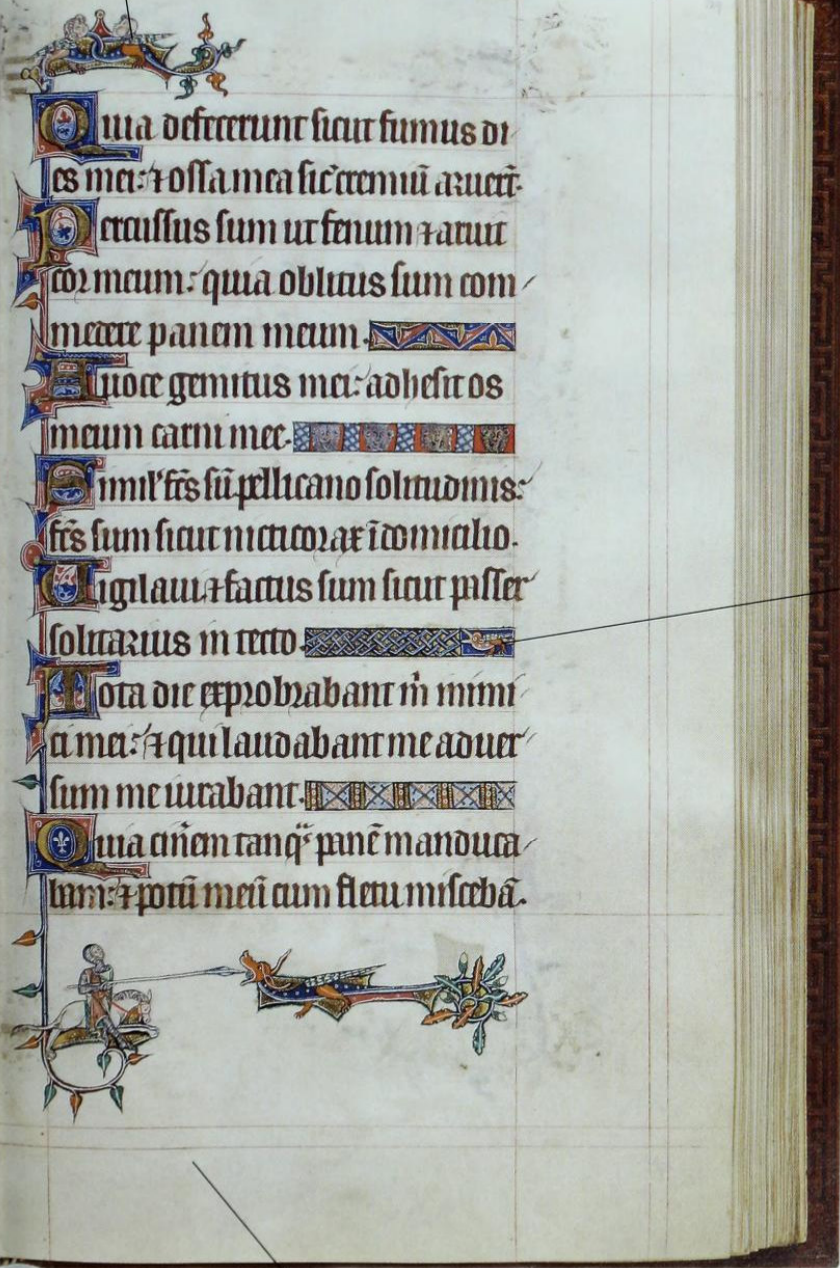 Quia defecerunt sicut fumus di
es mei: ⁊ ossa mea sic̄ cremiū aruer̄t.
Percussus sum ut fenum ⁊ aruit
cor meum: quia oblitus sum com
medere panem meum.
A uoce gemitus mei: adhesit os
meum carni mee.
Simil' fc̄s sū pellicano solitudinis:
fc̄s sum sicut nicticorax ī domicilio.
Uigilaui ⁊ factus sum sicut passer
solitarius in tecto.
Tota die exprobrabant m̄ inimi
ci mei: ⁊ qui laudabant me aduer
sum me iurabant.
Quia cin̄em tanqᷓ panē manduca
bam: ⁊ potū meū cum fletu miscebā.